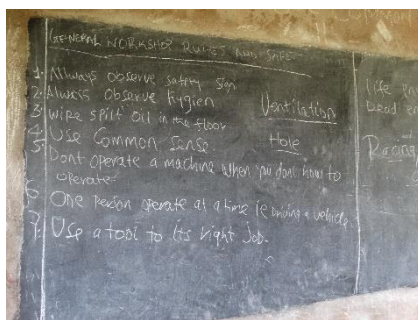 GENERAL WORKSHOP RULES AND SAFE
1. Allways observe safety sign
2. Always observe hygien
3. Wipe spilt oil in the floor
4. Use Common Sense.
5. Dont operate a machine when you dont how to
operate
6. One Person operate at a time ie driving a vehicle
7. Use a tool to its right job.
Ventilation
Hole
life
Dead